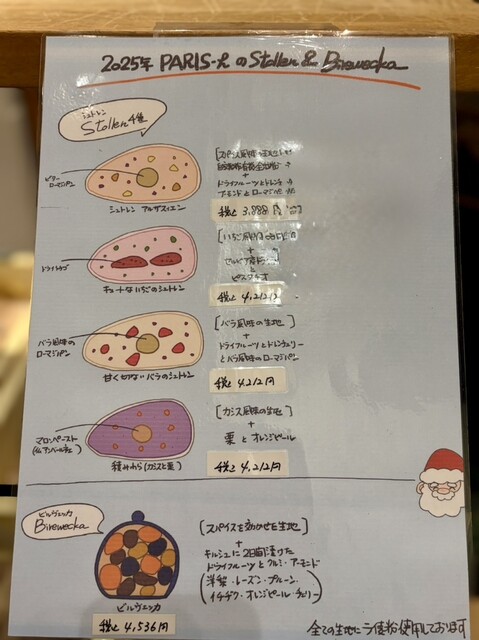 2025年 PARIS-h のStollen & Birewecka
シュトレン
Stollen 4種
ビター
ローマジパン
シュトレン アルザスィエン
[スパイス風味の生地]
+
ドライフルーツとドレンチェリー
アーモンドとローマジパン
税込 3,888円
ドライイチゴ
キュートないちごのシュトレン
[いちご風味の生地]
+
と
ピスタチオ
税込 4,212円
バラ風味の
ローマジパン
甘く切ないバラのシュトレン
[バラ風味の生地]
+
ドライフルーツとドレンチェリー
とバラ風味のローマジパン
税込 4,212円
マロンペースト
積みわら(カシスと栗)
[カシス風味の生地]
+
栗とオレンジピール
税込 4,212円
ビルヴェッカ
Birewecka
ビルヴェッカ
税込 4,536円
[スパイスを効かせた生地]
+
キルシュに2日間漬けた
ドライフルーツとクルミ・アーモンド
(洋梨・レーズン・プルーン
イチヂク・オレンジピール・チェリー)
全ての生地にラム酒粉使用しております